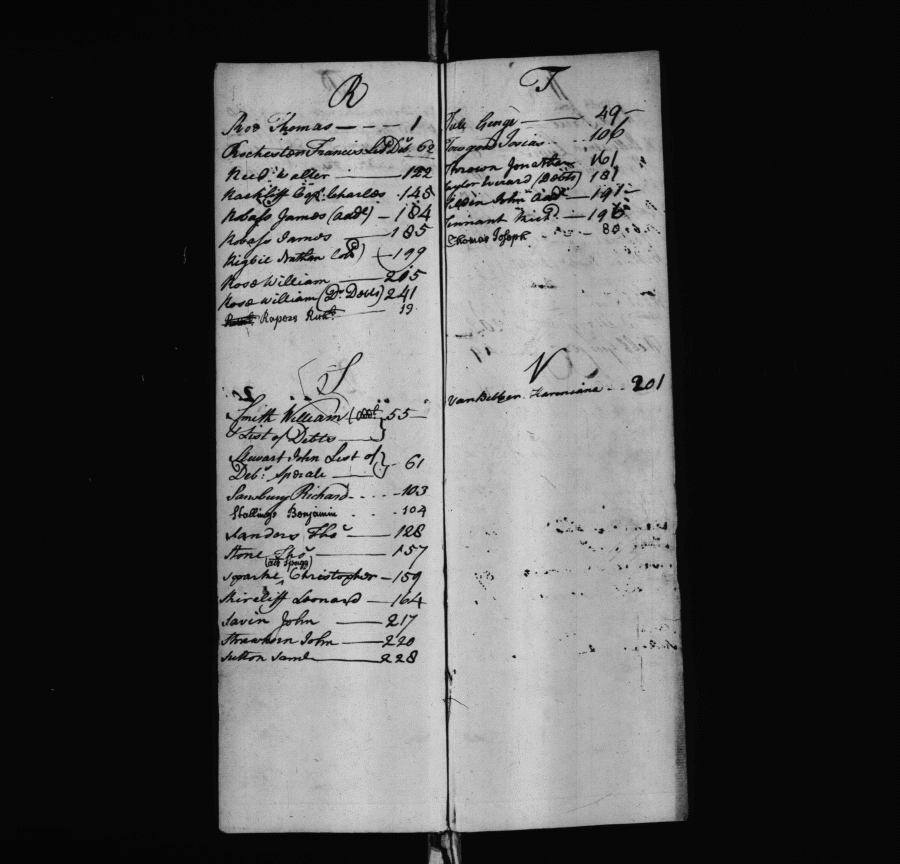 R
Roe Thomas — - - - 1
Rochester Francis List Debs. 62
Reed Walter — 122
Rackliff Capt. Charles - 145
Robass James (add.) - 184
Robass James — 185
Rigbie Nathan Colo. — 199
Rose William — 215
Rose William (Dr. Debts) 241
Rapers Richd. — 19
S
Smith William (add. } 55
& List of Debts — }
Stewart John List of } 61
Deb. Sperate — }
Sansbury Richard - - - - 103
Stallings Benjamin - - 104
Sanders Thos. — 128
Stone Thos. — 157
(als Sprigg)
Sparke Christopher - 159
Skircliff Leonard — 164
Savin John — 217
Strawhorn John — 220
Sutton Saml — 228
T
George — 49
Josias - - 106
Thrown Jonathan 161
(Debts) 181
John add. —
Tennant Richd. — 196
Thomas Joseph - - - 80
V
VanBibber - - 201